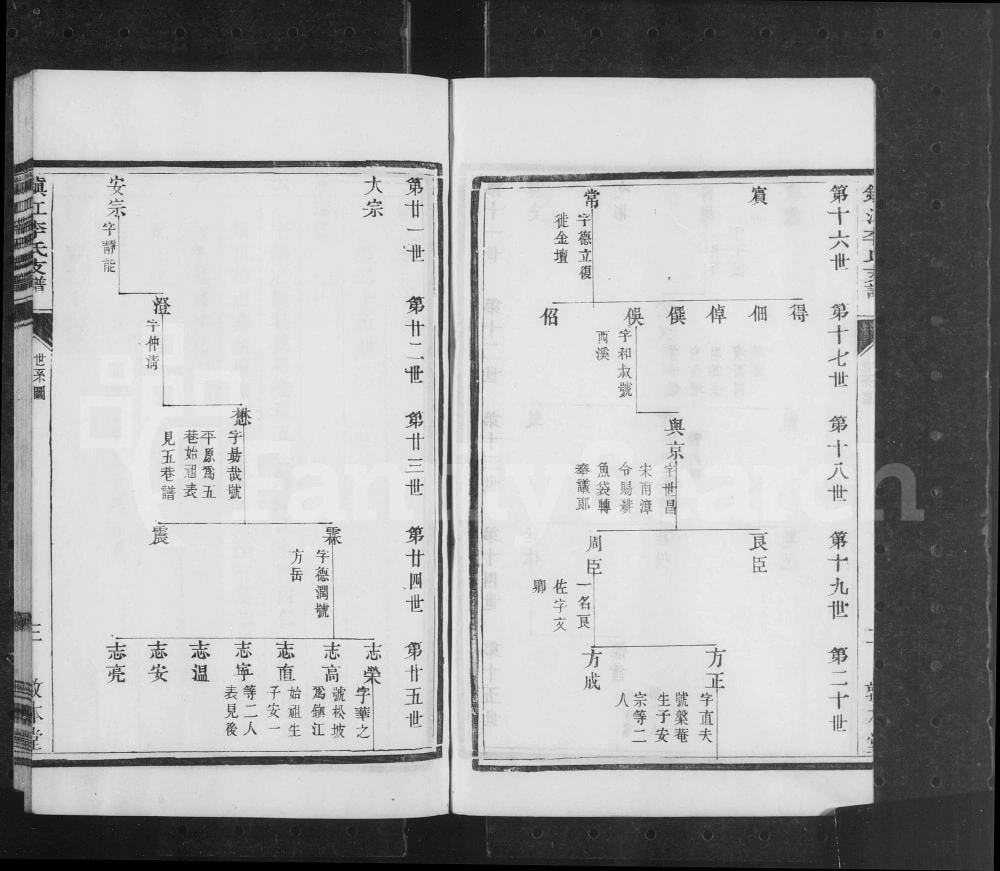 第十六世
第十七世
第十八世
第十九世
第二十世
賔
常
字德立復
徙金壇
得
佃
倬
僎
俁
字和叔號
西溪
佋
與京
字世昌
宋南漳
令賜緋
魚袋轉
奉議郎
良臣
周臣
一名良
佐字文
卿
方正
字直夫
號槃菴
生子安
宗等二
人
方成
第廿一世
第廿二世
第廿三世
第廿四世
第廿五世
大宗
安宗
字靜能
澄
字仲淸
懋
字易哉號
平原爲五
巷始祖表
見五巷譜
霖
字德潤號
方岳
震
志榮
字華之
志高
號松坡
爲鎭江
志直
始祖生
子安一
志寧
等二人
表見後
志溫
志安
志亮
鎭江李氏支譜
世系圖
三
敦本堂
FamilySearch